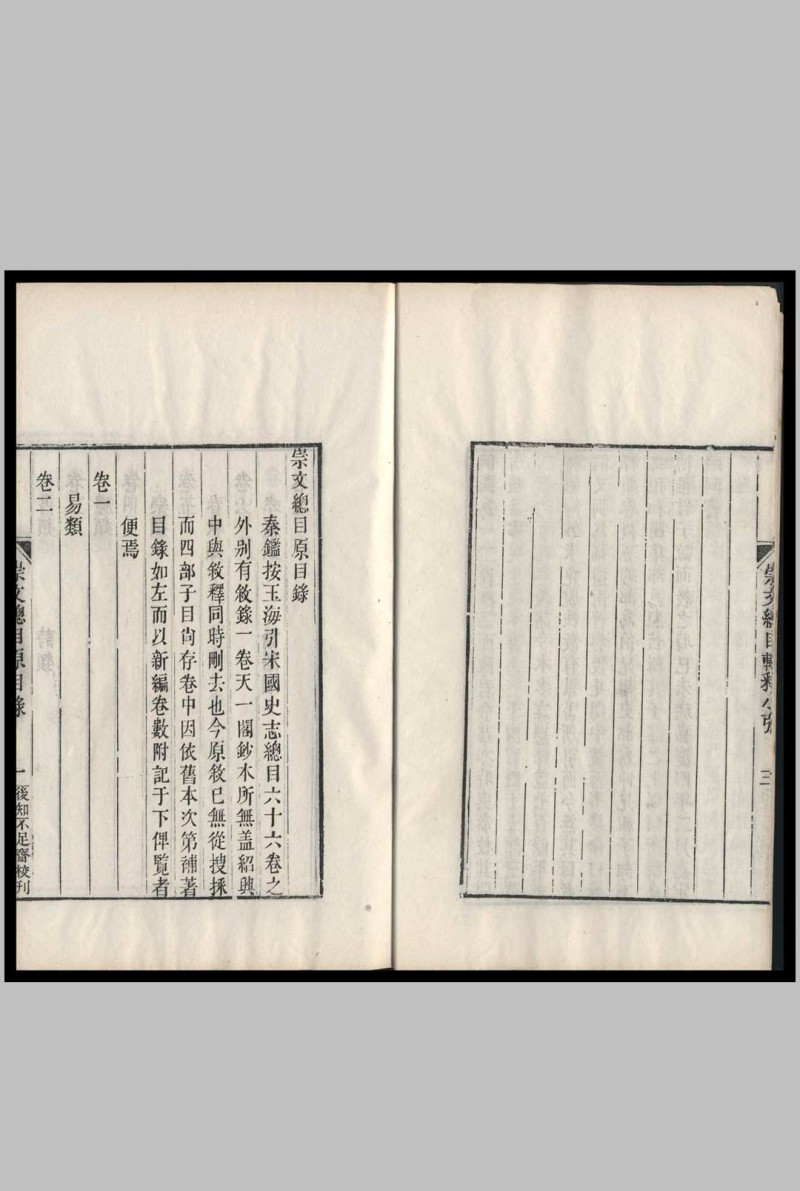 崇文總目輯釋小引
三
崇文總目原目錄
秦鑑按玉海引宋國史志總目六十六卷之
外別有敘錄一卷天一閣鈔本所無盖紹興
中與敘釋同時刪去也今原敘已無從搜採
而四部子目尚存卷中因依舊本次第補著
目錄如左而以新編卷數附記于下俾覽者
便焉
卷一
易類
卷二
崇文總目原目錄
一
後知不足齋校刊